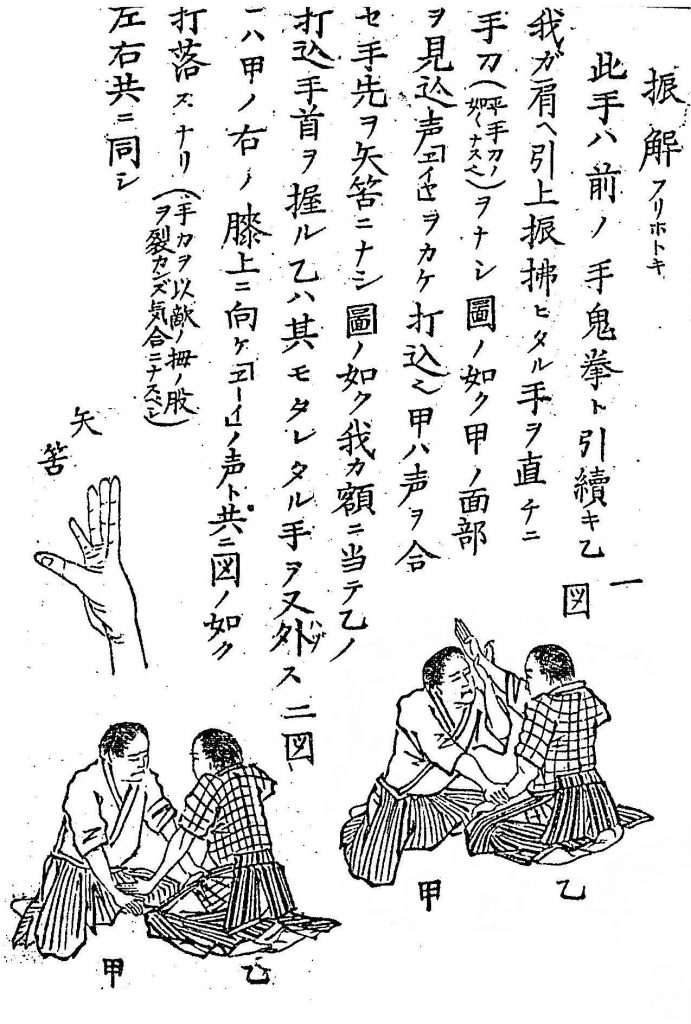 振解 フリホトキ
此手ハ前ノ手鬼拳ト引續キ乙
我ガ肩ヘ引上振拂ヒタル手ヲ直チニ
手刀(手刀ノ如クナスベシ)ヲナシ圖ノ如ク甲ノ面部
ヲ見込声ヱイヤヲカケ打込ム甲ハ声ヲ合
セ手先ヲ矢筈ニナシ圖ノ如ク我カ額ニ当テ乙ノ
打込手首ヲ握ル乙ハ其モタレタル手ヲ又外ス二図
ハ甲ノ右ノ膝上ニ向ケヱーイノ声ト共ニ図ノ如ク
打落スナリ(手力ヲ以敵ノ拇ノ股ヲ裂カンズ気合ニナスベシ)
左右共ニ同シ
一図
矢筈
甲
乙
甲
乙